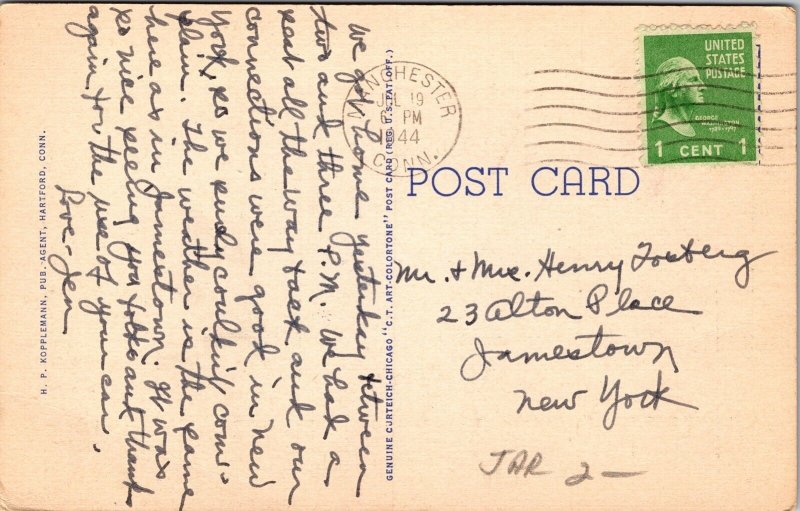 We got home yesterday between
two and three P.M. We had a
seat all the way back and our
connections were good in New
York, so we really couldn't com-
plain. The weather is the same
here as in Jamestown. It was
so nice seeing you folks and thanks
again for the use of your car.
Love - Jen
H. P. KOPPLEMANN, PUB. AGENT, HARTFORD, CONN.
GENUINE CURTEICH-CHICAGO "C.T. ART-COLORTONE" POST CARD (REG. U.S. PAT. OFF.)
MANCHESTER
JUL 19
PM
1944
CONN.
UNITED
STATES
POSTAGE
GEORGE
WASHINGTON
1789-1797
1 CENT 1
POST CARD
Mr. + Mrs. Henry Fosberg
23 Alton Place
Jamestown
New York
JAR 2 —